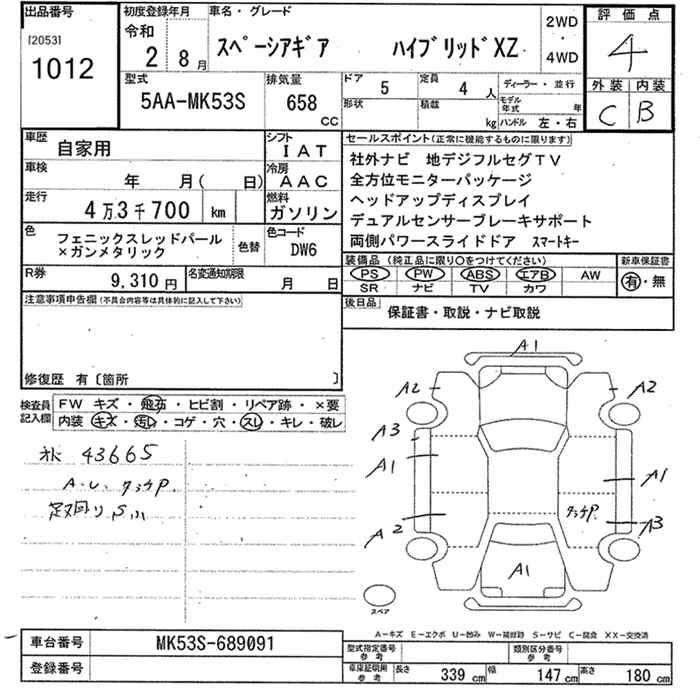 出品番号
[2053]
1012
初度登録年月
令和
2 8 月
車名・グレード
スペーシアギア ハイブリッドXZ
2WD
・
4WD
評価点
4
外装 内装
C B
型式
5AA-MK53S
排気量
658
CC
ドア
5
定員
4 人
ディーラー・並行
形状
積載
kg
モデル年式 年
ハンドル 左・右
車歴
自家用
シフト
IAT
車検
年 月( 日)
冷房
AAC
走行
4万3千700 km
燃料
ガソリン
色
フェニックスレッドパール
×ガンメタリック
色替
色コード
DW6
R券
9,310 円
名変通知期限
月 日
セールスポイント(正常に機能するものに限ります)
社外ナビ 地デジフルセグTV
全方位モニターパッケージ
ヘッドアップディスプレイ
デュアルセンサーブレーキサポート
両側パワースライドドア スマートキー
装備品(純正品に限り〇をつけてください)
新車保証書
PS PW ABS エアB AW
SR ナビ TV カワ
有・無
後日品
保証書・取説・ナビ取説
注意事項申告欄(不具合内容等は具体的に記入して下さい)
修復歴 有〔箇所 〕
検査員
記入欄
FW キズ・飛石・ヒビ割・リペア跡・×要
内装 キズ・汚レ・コゲ・穴・スレ・キレ・破レ
43665
A・U、タッチP.
足回りSふ
A1
A2 A2
A3
A1 A1
タッチP.
A2 A3
A1
スペア
A-キズ E-エクボ U-凹み W-補修跡 S-サビ C-腐食 XX-交換済
車台番号
MK53S-689091
登録番号
型式指定番号
参考
類別区分番号
参考
車庫証明用
参考
長さ 339 cm 幅 147 cm 高さ 180 cm